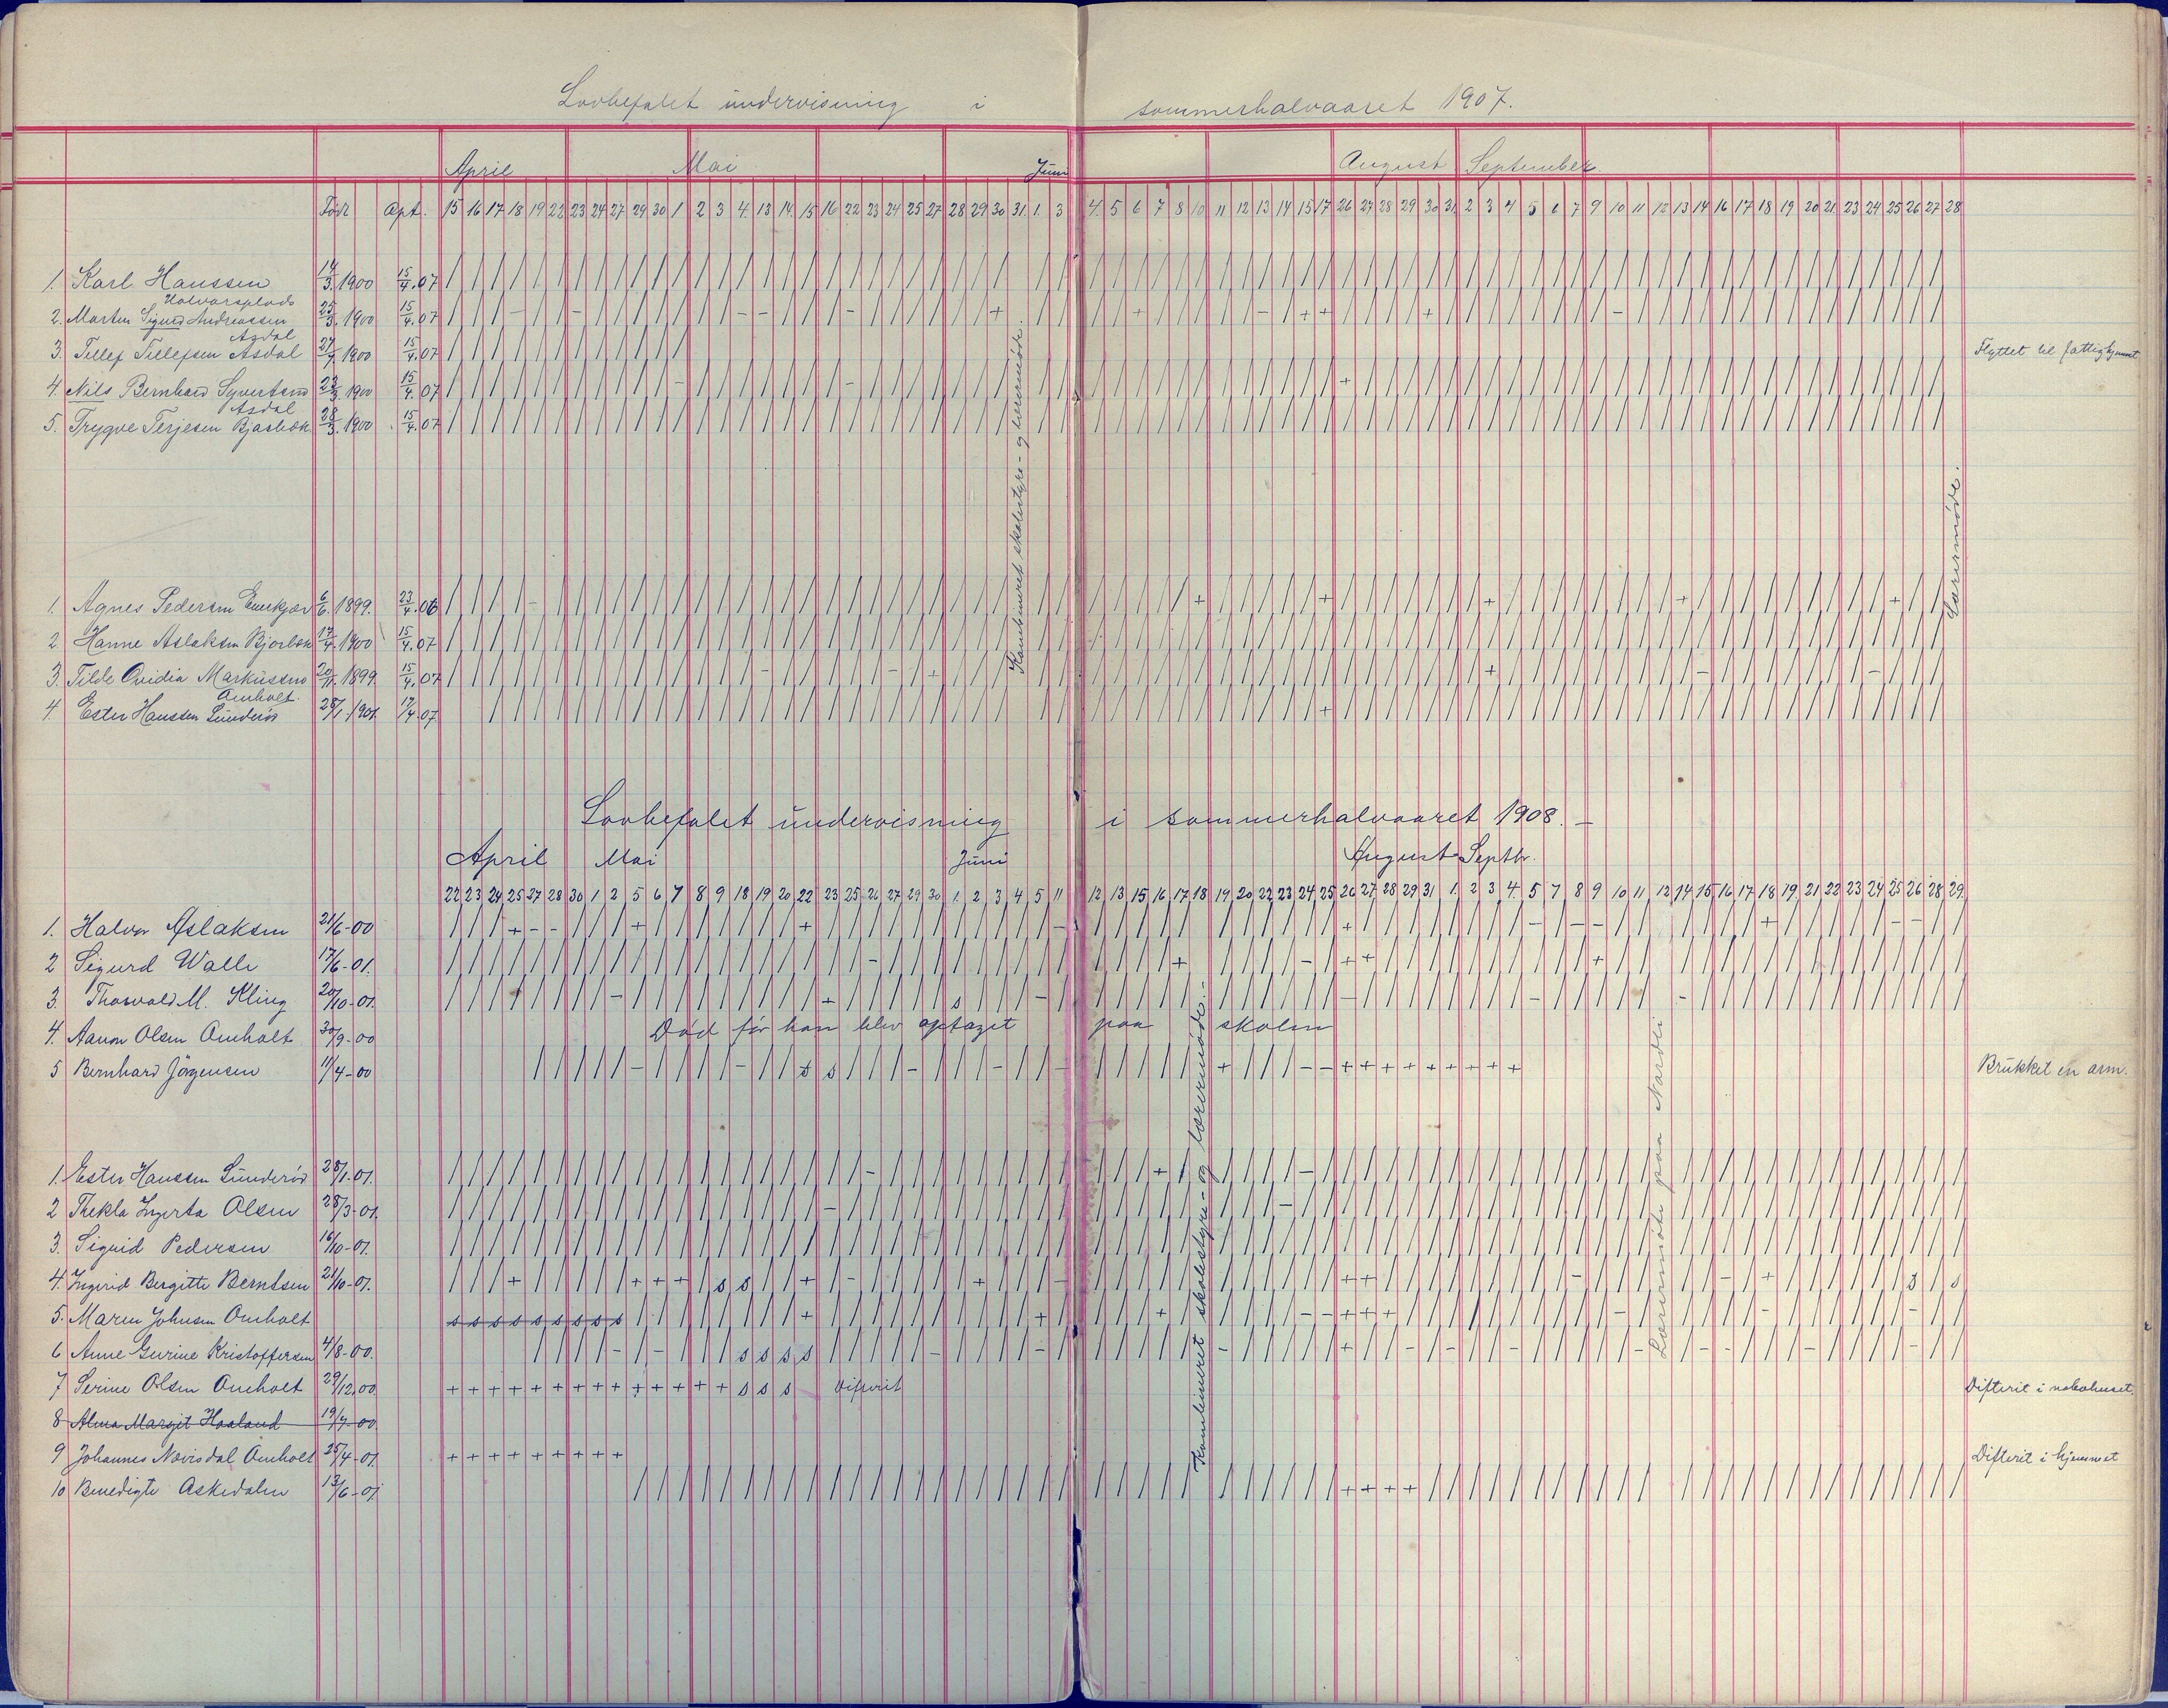 Lovbefalet undervisning i sommerhalvaaret 1907.
April Mai Juni August September
Født Opt. 15 16 17 18 19 22 23 24 27 29 30 1 2 3 4 13 14 15 16 22 23 24 25 27 28 29 30 31 1 3 4 5 6 7 8 10 11 12 13 14 15 17 26 27 28 29 30 31 2 3 4 5 6 7 9 10 11 12 13 14 16 17 18 19 20 21 23 24 25 26 27 28
1. Karl Hanssen 14/3.1900 15/4.07
Halvorsplads
2. Martin Sigurd Andreassen 25/3.1900 15/4.07
Asdal
3. Tellef Tellefsen Asdal 27/4.1900 15/4.07 Flyttet til fattighjemmet
4. Nils Bernhard Syvertsen 23/3.1900 15/4.07
Asdal
5. Trygve Terjesen Bjasbæk 28/3.1900 15/4.07
Kombineret skolestyre- og lærermøde.
Lærermøde.
1. Agnes Pedersen 6/6.1899. 23/4.06
2 Hanne Aslaksen Bjorbæk 17/4.1900 15/4.07
3. Tilde Ovidia Markussen 20/11.1899 15/4.07
Omholt.
4. Ester Hanssen Sunderød 28/1.1901. 17/4.07
Lovbefalet undervisning i sommerhalvaaret 1908. –
April Mai Juni August Septbr.
22 23 24 25 27 28 30 1 2 5 6 7 8 9 18 19 20 22 23 25 26 27 29 30 1 2 3 4 5 11 12 13 15 16 17 18 19 20 22 23 24 25 26 27 28 29 31 1 2 3 4 5 7 8 9 10 11 12 14 15 16 17 18 19 21 22 23 24 25 26 28 29.
1. Halvor Aslaksen 21/6-00
2 Sigurd Walle 17/6-01.
3 Thorvald M. Kling 20/10-01.
4. Aanon Olsen Omholt 30/9-00 Død før han blev optaget paa skolen
5 Bernhard Jörgensen 11/4-00 Brukket en arm.
Kombineret skolestyre- og lærermøde.-
Lærermøde paa Nordli
1. Ester Hanssen Sunderød 28/1-01.
2 Thekla Ingerta Olsen 28/3-01.
3. Sigrid Pedersen 16/10-01.
4. Ingerid Bergitte Berntsen 21/10-01.
5. Maren Johnsen Omholt
6 Anne Gurine Kristoffersen 4/8-00.
7 Serine Olsen Omholt 29/12.00 Difterit Difterit i nabohuset.
8 Alma Margit Haaland 19/7-00.
9 Johannes Nævisdal Omholt 25/4-01 Difterit i hjemmet
10 Benedigte Askedalen 13/6-01